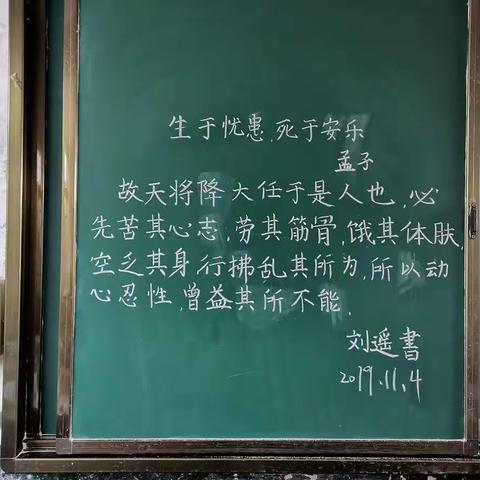 生于忧患,死于安乐
孟子
故天将降大任于是人也,必
先苦其心志,劳其筋骨,饿其体肤,
空乏其身,行拂乱其所为,所以动
心忍性,曾益其所不能.
刘遥書
2019.11.4